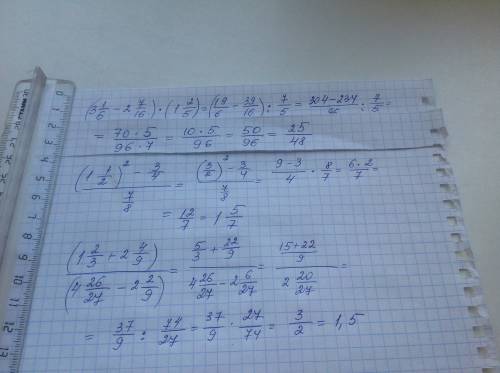 (3 1/6 − 2 7/16) · (1 2/5) = (19/6 − 39/16) : 7/5 = 304−234/96 : 7/5 =
= 70·5/96·7 = 10·5/96 = 50/96 = 25/48
((1 1/2)² − 3/4)/(7/8) = ((3/2)² − 3/4)/(7/8) = 9−3/4 · 8/7 = 6·2/7 =
= 12/7 = 1 5/7
(1 2/3 + 2 4/9)/(4 26/27 − 2 2/9) = (5/3 + 22/9)/(4 26/27 − 2 6/27) = (15+22/9)/(2 20/27) =
= 37/9 : 74/27 = 37/9 · 27/74 = 3/2 = 1,5